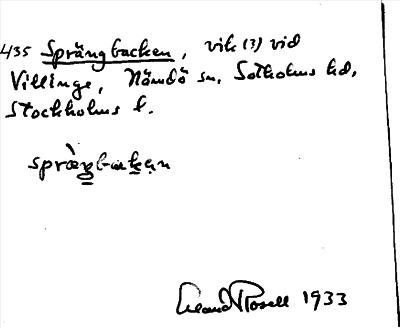 435 Sprängbacken, vik (3) vid
Villinge, Nämdö sn, Sotholms hd,
Stockholms l.
sprængbakən
Erland Rosell 1933